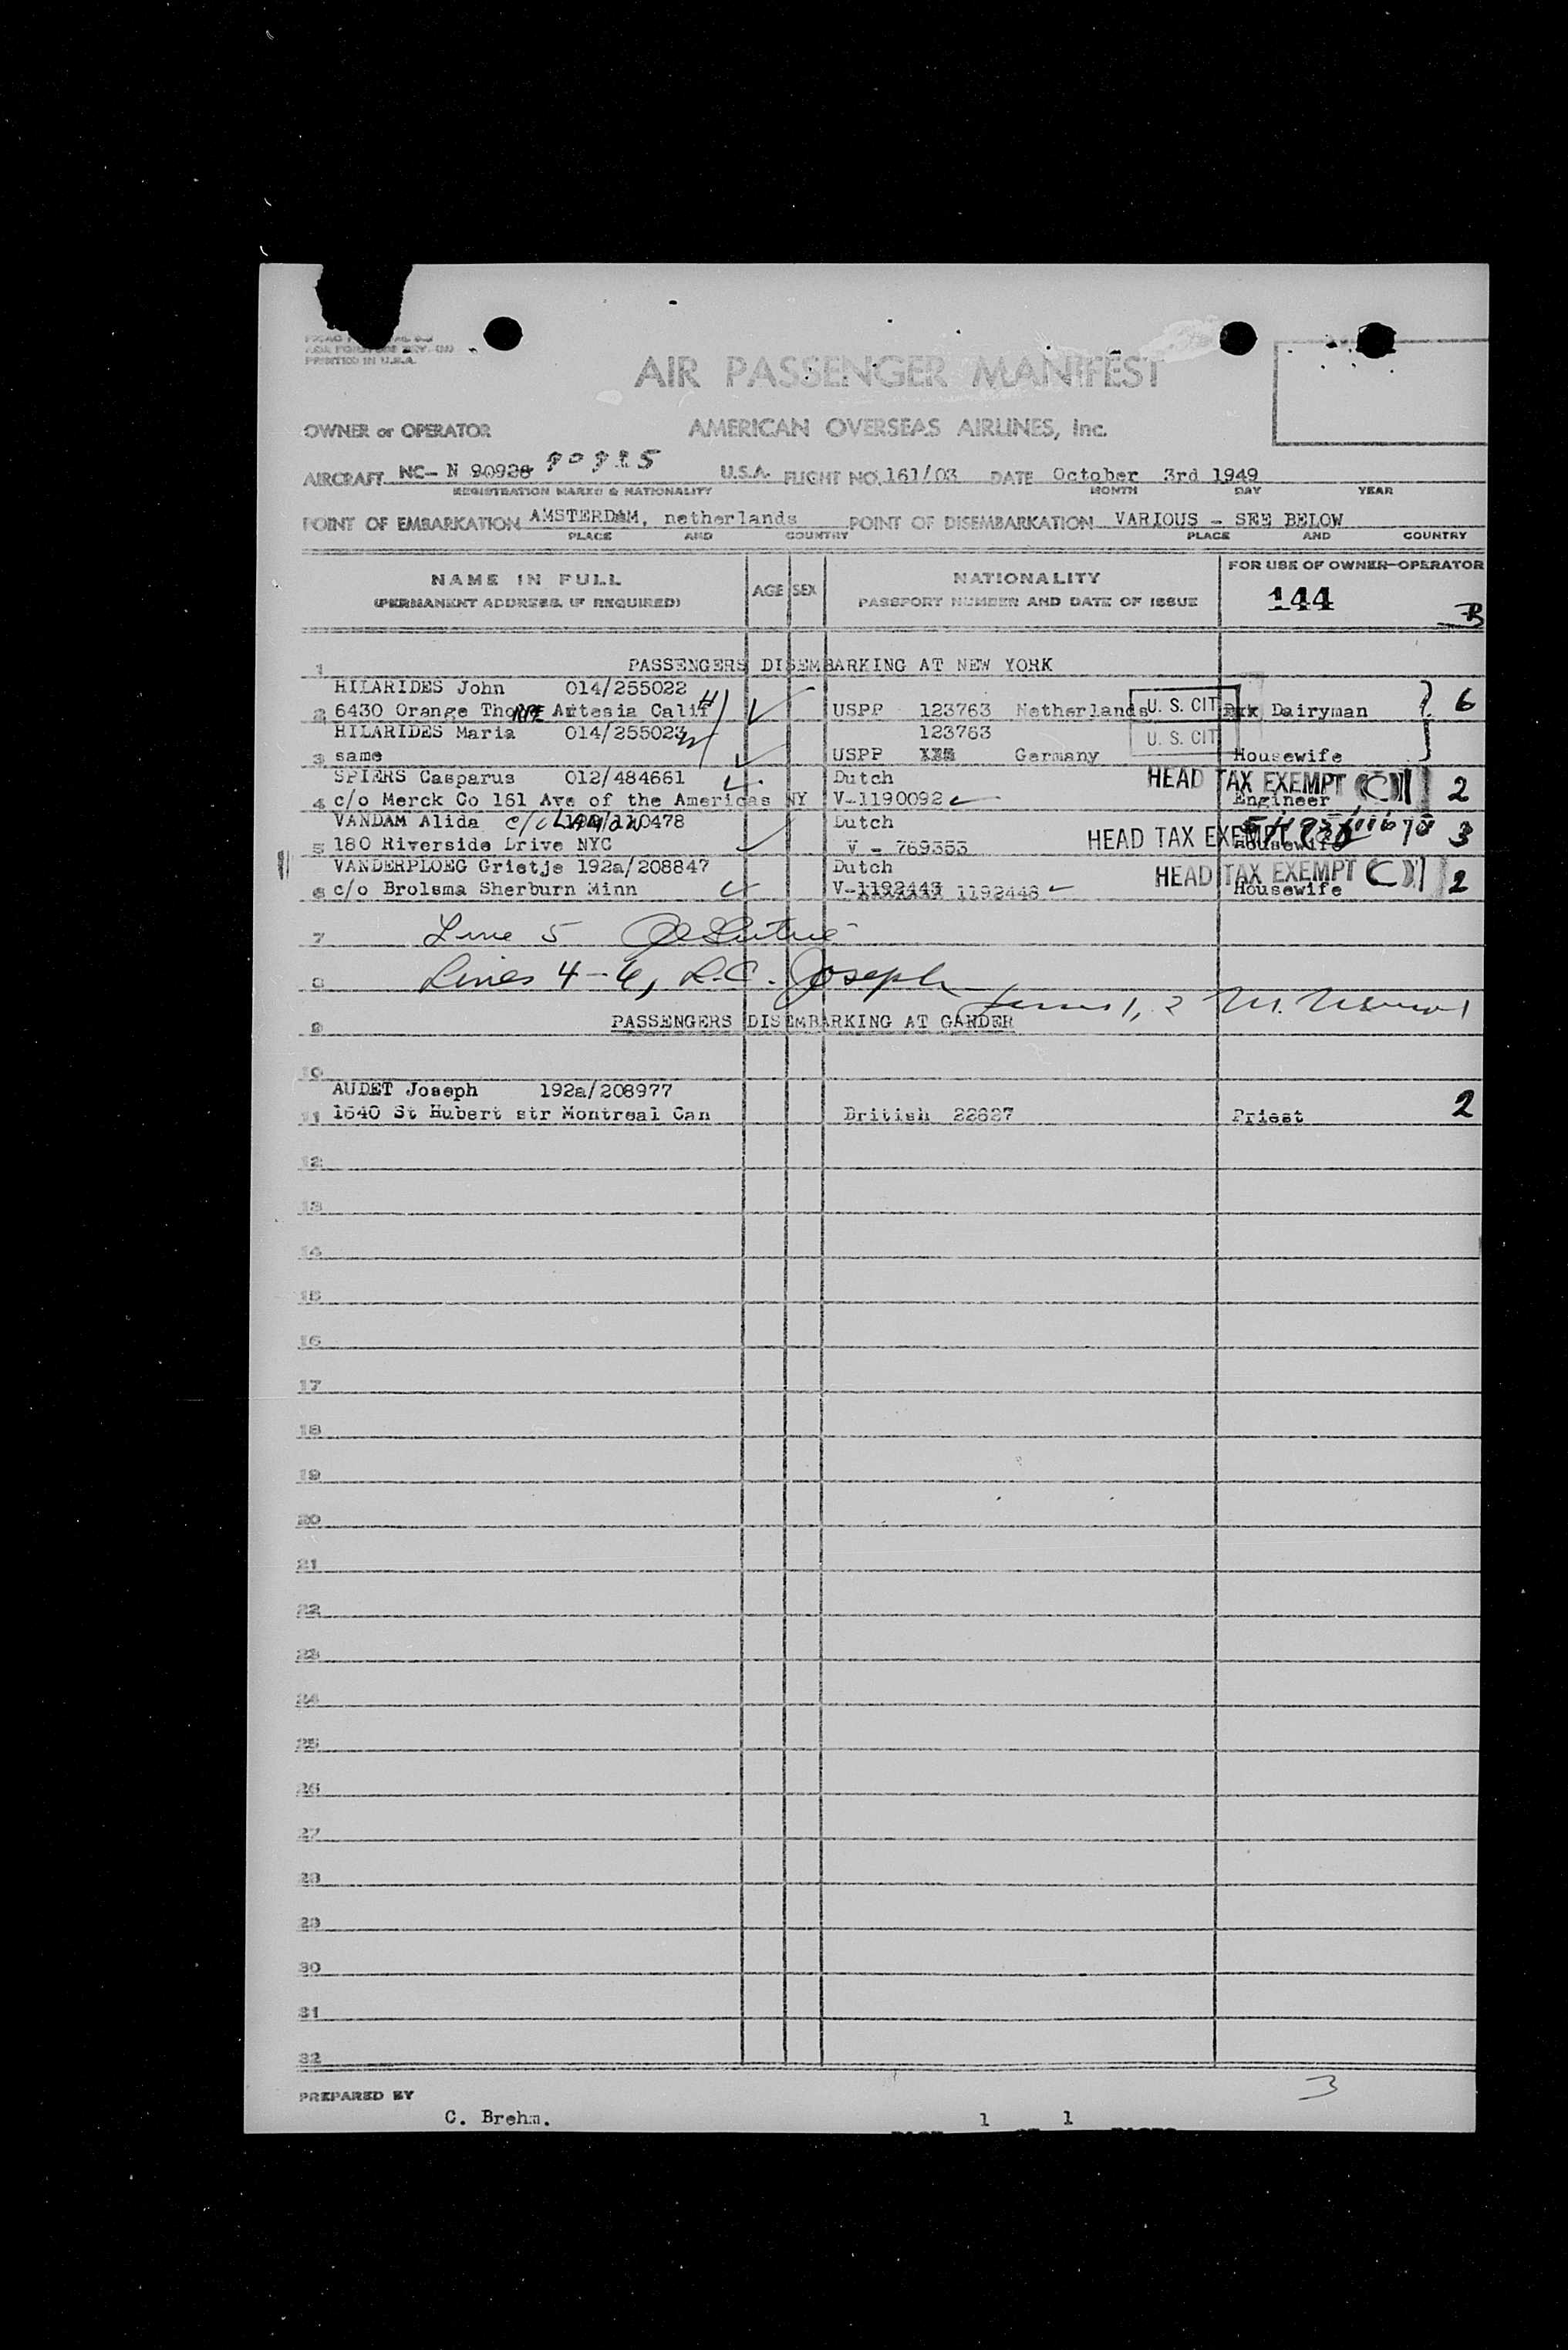 PRINTED IN U.S.A.
AIR PASSENGER MANIFEST
OWNER or OPERATOR AMERICAN OVERSEAS AIRLINES, Inc.
AIRCRAFT NC- N 90928 90925 U.S.A. FLIGHT NO. 161/03 DATE October 3rd 1949
REGISTRATION MARKS & NATIONALITY MONTH DAY YEAR
POINT OF EMBARKATION AMSTERDAM, netherlands POINT OF DISEMBARKATION VARIOUS - SEE BELOW
PLACE AND COUNTRY PLACE AND COUNTRY
NAME IN FULL AGE SEX NATIONALITY FOR USE OF OWNER-OPERATOR
(PERMANENT ADDRESS, IF REQUIRED) PASSPORT NUMBER AND DATE OF ISSUE 144 B
1 PASSENGERS DISEMBARKING AT NEW YORK
HILARIDES John 014/255022
2 6430 Orange Thorpe Artesia Calif USPP 123763 Netherlands U. S. CIT Dairyman 6
HILARIDES Maria 014/255023 123763 U. S. CIT
3 same USPP Germany Housewife
SPIERS Casparus 012/484661 Dutch HEAD TAX EXEMPT
4 c/o Merck Co 161 Ave of the Americas NY V-1190092 Engineer 2
VANDAM Alida c/o 110478 Dutch
5 180 Riverside Drive NYC V - 769353 HEAD TAX EXEMPT Housewife 3
VANDERPLOEG Grietje 192a/208847 Dutch HEAD TAX EXEMPT
6 c/o Brolsma Sherburn Minn V-1192443 1192448 Housewife 2
7 Line 5
8 Lines 4-6, L.C. Joseph
Lines 1, 2
9 PASSENGERS DISEMBARKING AT GANDER
10
AUDET Joseph 192a/208977
11 1640 St Hubert str Montreal Can British 22827 Priest 2
12
13
14
15
16
17
18
19
20
21
22
23
24
25
26
27
28
29
30
31
32
PREPARED BY 3
C. Brehm. 1 1